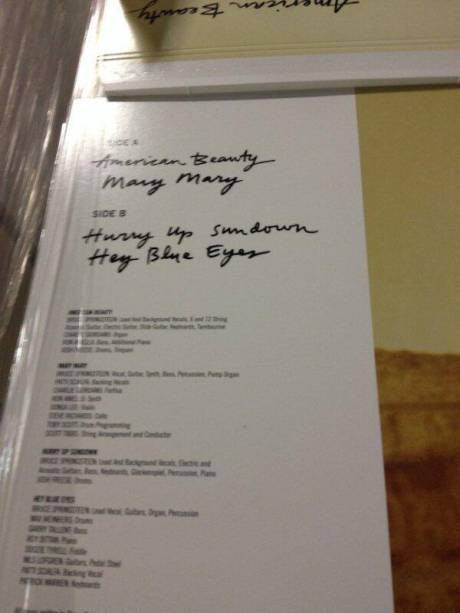 American Beauty
SIDE A
American Beauty
Mary Mary
SIDE B
Hurry Up Sundown
Hey Blue Eyes
AMERICAN BEAUTY
BRUCE SPRINGSTEEN: Lead And Background Vocals, 6 and 12 String
Acoustic Guitar, Electric Guitar, Slide Guitar, Keyboards, Tambourine
CHARLIE GIORDANO: Organ
RON ANIELLO: Bass, Additional Piano
JOSH FREESE: Drums, Timpani
MARY MARY
BRUCE SPRINGSTEEN: Vocal, Guitar, Synth, Bass, Percussion, Pump Organ
PATTI SCIALFA: Backing Vocals
CHARLIE GIORDANO: Farfisa
RON ANIELLO: Synth
SOOZIE LEE: Violin
STEVE RICHARDS: Cello
TOBY SCOTT: Drum Programming
SCOTT TIBBS: String Arrangement and Conductor
HURRY UP SUNDOWN
BRUCE SPRINGSTEEN: Lead And Background Vocals, Electric and
Acoustic Guitars, Bass, Keyboards, Glockenspiel, Percussion, Piano
JOSH FREESE: Drums
HEY BLUE EYES
BRUCE SPRINGSTEEN: Lead Vocal, Guitars, Organ, Percussion
MAX WEINBERG: Drums
GARRY TALLENT: Bass
ROY BITTAN: Piano
SOOZIE TYRELL: Fiddle
NILS LOFGREN: Guitars, Pedal Steel
PATTI SCIALFA: Backing Vocal
PATRICK WARREN: Keyboards